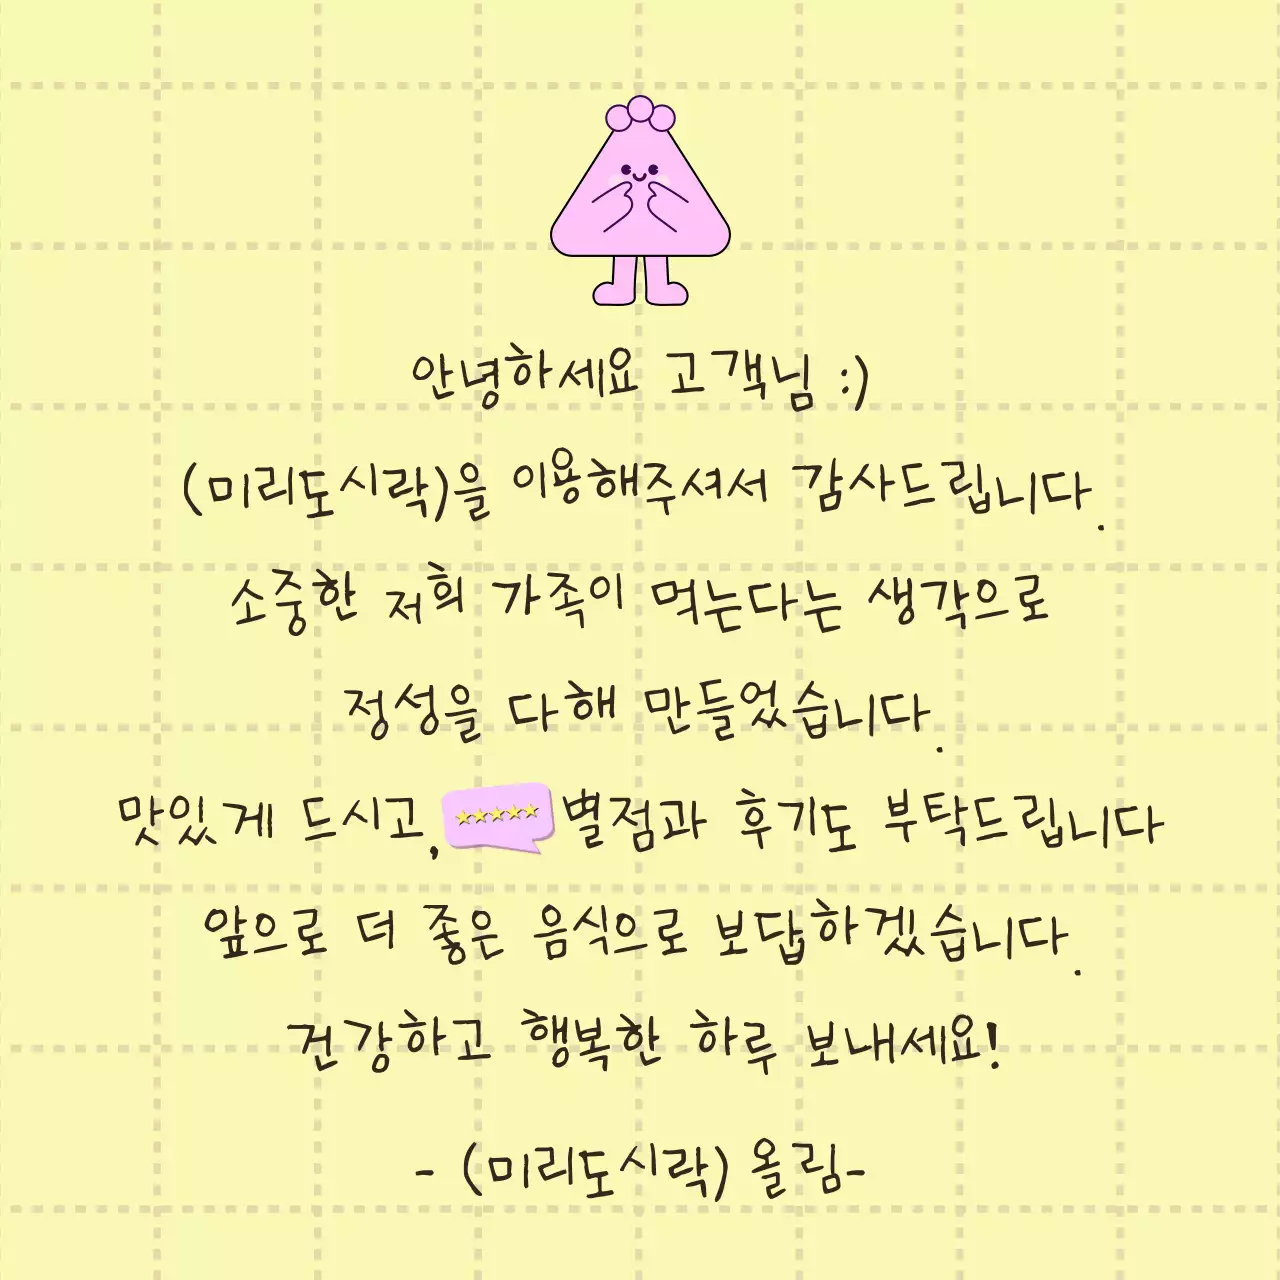 안녕하세요 고객님 :)
(미리도시락)을 이용해주셔서 감사드립니다.
소중한 저희 가족이 먹는다는 생각으로
정성을 다해 만들었습니다.
맛있게 드시고, ★★★★★ 별점과 후기도 부탁드립니다
앞으로 더 좋은 음식으로 보답하겠습니다.
건강하고 행복한 하루 보내세요!
- (미리도시락) 올림-